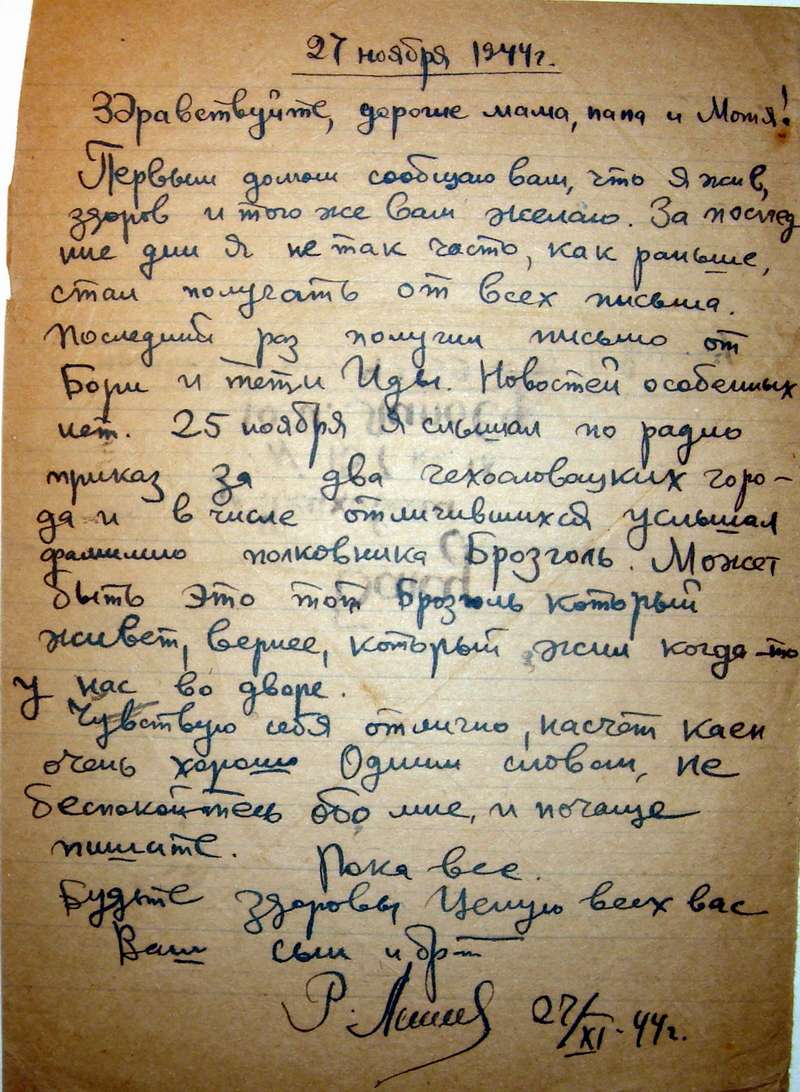 27 ноября 1944г.
Здравствуйте, дорогие мама, папа и Мотя!
Первым долгом сообщаю вам, что я жив,
здоров и того же вам желаю. За послед
ние дни я не так часто, как раньше,
стал получать от всех письма.
Последний раз получил письмо от
Бори и тёти Иды. Новостей особенных
нет. 25 ноября я слышал по радио
приказ за два чехословацких горо-
да и в числе отличившихся услышал
фамилию полковника Брозголь. Может
быть это тот Брозголь который
живет, вернее, который жил когда-то
у нас во дворе.
Чувствую себя отлично, насчет
очень хорошо Одним словом, не
беспокойтесь обо мне, и почаще
пишите. Пока все.
Будьте здоровы Целую всех вас
Ваш сын и брат
Р. 27/XI-44г.